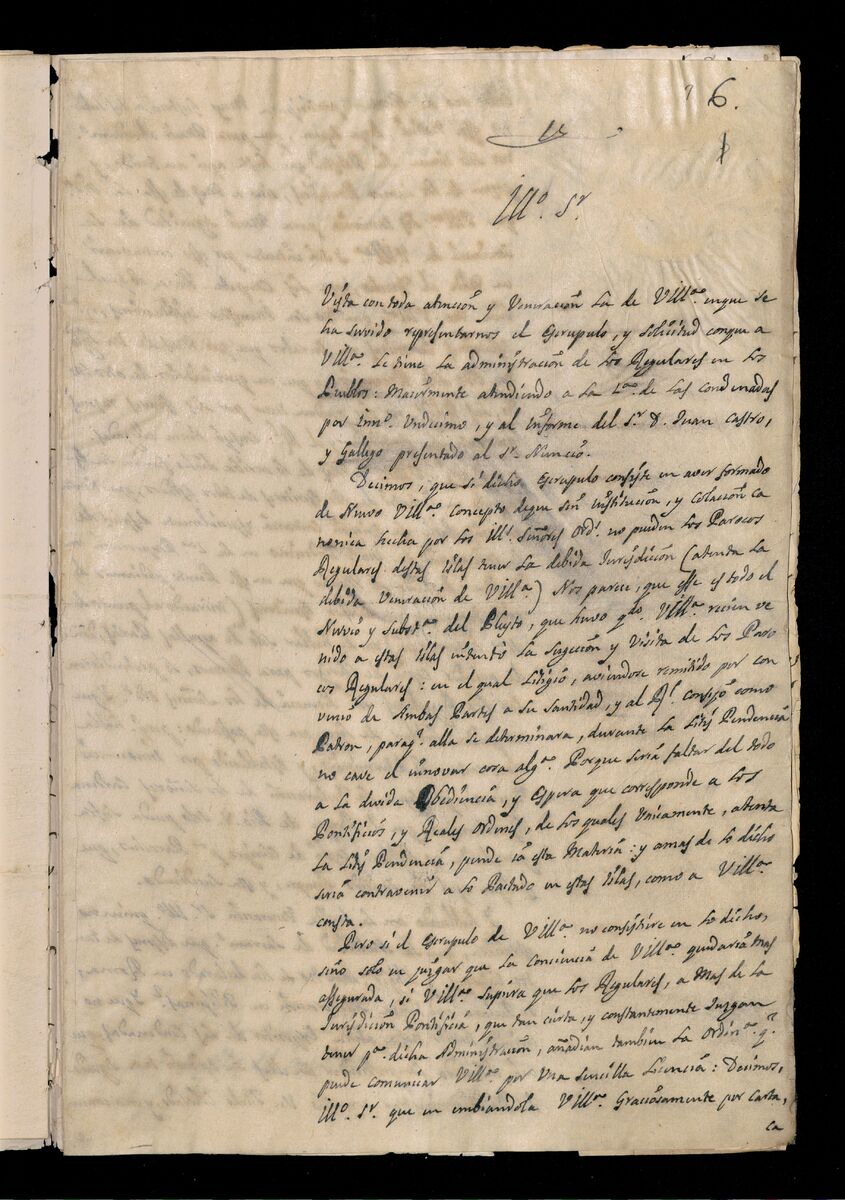 6.
Illo. Sr.
Vista con toda atención y Veneración la de VIllma. en que se
ha servido representarnos el Escrupulo, y solicitud con que a
VIllma. le tiene la administración de los Regulares en los
Pueblos: Maiormente atendiendo a la de las condenadas
por Inno. Undecimo, y al informe del Sr. D. Juan Castro,
y Gallego presentado al Sr. Nuncio.
Decimos, que si dicho Escrupulo consiste en aver formado
de Nuevo VIllma. concepto de que sin institución, y colación ca
nonica hecha por los Illes. Señores Ords. no pueden los Parocos
Regulares destas Islas tener la debida Jurisdición (atenta la
debida Veneración de VIllma.) Nos parece, que esse es todo el
Nervio y Substa. del Pleyto, que huvo qdo. VIllma. recien ve
nido a estas Islas intentò la sugeción y Visita de los Paro
cos Regulares: en el qual Litigio, aviendose remitido por con
venio de Ambas Partes a Su Santidad, y al Rl. Consejo como
Patron, paraq. alla se determinara, durante la Litis Pendencia
no cave el innovar cosa algna. Porque seria faltar del todo
a la devida Obediencia, y Espera que corresponde a los
Pontificios, y Reales Ordenes, de los quales Unicamente, atenta
la Litis Pendencia, pende ia esta Materia: y amas de lo dicho
seria contravenir a lo Pactado en estas Islas, como a VIllma.
consta.
Pero si el Escrupulo de VIllma. no consistiere en lo dicho,
sino solo en juzgar que la conciencia de VIllma. quedaria mas
assegurada, si VIllma. supiera que los Regulares, a mas de la
Jurisdición Pontificia, que tan cierta, y constantemente Juzgan
tener pa. dicha Administración, añadian tambien la Ordina. q.
puede comunicar VIllma. por Una sencilla Licencia: Decimos,
Illo. Sr. que en embiandola VIllma. Graciosamente por Carta,
ca